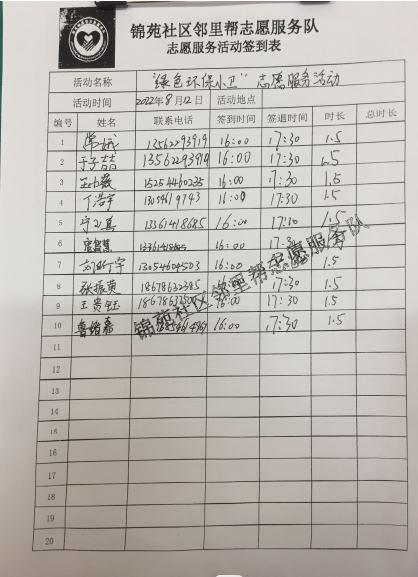 锦苑社区邻里帮志愿服务队
志愿服务活动签到表
活动名称 "绿色环保小卫" 志愿服务活动
活动时间 2022年8月12日 活动地点
编号 姓名 联系电话 签到时间 签退时间 时长 总时长
1 常城 13562293919 16:00 17:30 1.5
2 于子喆 13562293919 16:00 17:30 1.5
3 15254460235 16:00 17:30 1.5
4 丁浩宇 16:00 17:30 1.5
5 13361418685 16:00 1.5
6 16:00 17:30
7 13054604503 16:00
8 张振英 18678632385 17:30 1.5
9 王贵钰 17:30 1.5
10 16:00 17:30 1.5
锦苑社区邻里帮志愿服务队
11
12
13
14
15
16
17
18
19
20